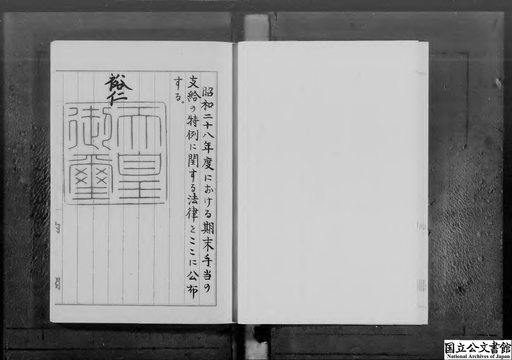 昭和二十八年度における期末手当の
支給の特例に関する法律をここに公布
する。
裕仁
天皇
御璽
国立公文書館
National Archives of Japan